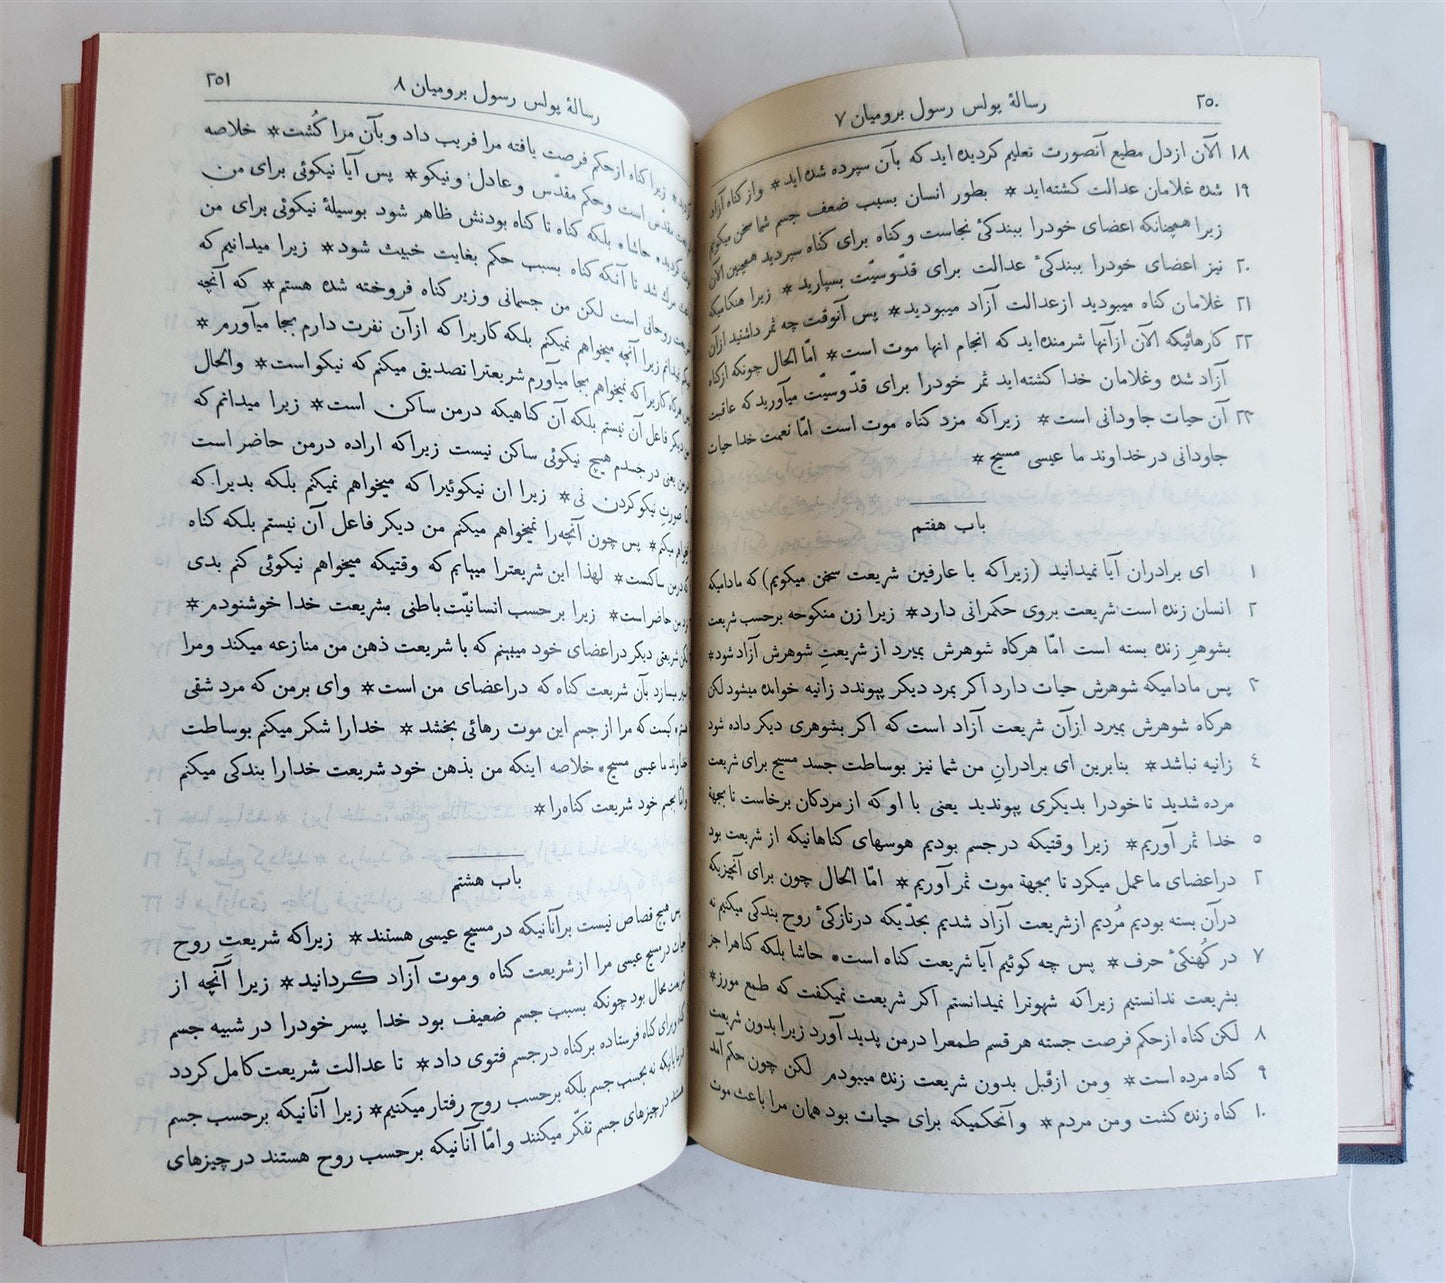 ٢٥٠
رسالهٔ پولس رسول برومیان ٧
١٨ الآن ازدل مطیع آنصورت تعلیم کردیده اید که بآن سپرده شده اید* وازکناه آزاد
١٩ شده غلامان عدالت کشته‌اید* بطور انسان بسبب ضعف جسم شما سخن میکویم
زیرا همچنانکه اعضای خودرا ببندکیٔ نجاست وکناه برای کناه سپردید همچنین الآن
٢٠ نیز اعضای خودرا ببندکیٔ عدالت برای قدّوسیّت بسپارید* زیرا هنکامیکه
٢١ غلامان کناه میبودید ازعدالت آزاد میبودید* پس آنوقت چه ثمر داشتید ازآن
٢٢ کارهائیکه الآن ازآنها شرمنده‌اید که انجام آنها موت است* امّا الحال چونکه ازکناه
آزاد شده وغلامان خدا کشته‌اید ثمر خودرا برای قدّوسیّت میآورید که عاقبت
٢٣ آن حیات جاودانی است* زیراکه مزد کناه موت است امّا نعمت خدا حیات
جاودانی درخداوند ما عیسی مسیح*
باب هفتم
١ ای برادران آیا نمیدانید (زیراکه با عارفین شریعت سخن میکویم) که مادامیکه
٢ انسان زنده است شریعت بروی حکمرانی دارد* زیرا زن منکوحه برحسب شریعت
بشوهرِ زنده بسته است امّا هرکاه شوهرش بمیرد از شریعتِ شوهرش آزاد شود*
٣ پس مادامیکه شوهرش حیات دارد اکر بمرد دیکر پیوندد زانیه خوانده میشود لکن
هرکاه شوهرش بمیرد ازآن شریعت آزاد است که اکر بشوهری دیکر داده شود
٤ زانیه نباشد* بنابرین ای برادرانِ من شما نیز بوساطت جسد مسیح برای شریعت
مرده شدید تا خودرا بدیکری پیوندید یعنی با او که از مردکان برخاست تا بجههٔ
٥ خدا ثمر آوریم* زیرا وقتیکه درجسم بودیم هوسهای کناهانیکه از شریعت بود
٦ دراعضای ما عمل میکرد تا بجههٔ موت ثمر آوریم* امّا الحال چون برای آنچیزیکه
درآن بسته بودیم مُردیم ازشریعت آزاد شدیم بحدّیکه درتازکیٔ روح بندکی میکنیم نه
٧ در کُهنکیٔ حرف* پس چه کوئیم آیا شریعت کناه است. حاشا بلکه کناهرا جز
بشریعت ندانستیم زیراکه شهوترا نمیدانستم اکر شریعت نمیکفت که طمع مورز*
٨ لکن کناه ازحکم فرصت جسته هر قسم طمعرا درمن پدید آورد زیرا بدون شریعت
٩ کناه مرده است* ومن ازقبل بدون شریعت زنده میبودم لکن چون حکم آمد
١٠ کناه زنده کشت ومن مردم* وآنحکمیکه برای حیات بود همان مرا باعث موت
رسالهٔ پولس رسول برومیان ٨
٢٥١
کردید* زیرا کناه ازحکم فرصت یافته مرا فریب داد وبآن مرا کُشت* خلاصه
شریعت مقدّس است وحکم مقدّس وعادل ونیکو* پس آیا نیکوئی برای من
موت کردید. حاشا. بلکه کناه تا کناه بودنش ظاهر شود بوسیلهٔ نیکوئی برای من
باعث مرك شد تا آنکه کناه بسبب حکم بغایت خبیث شود* زیرا میدانیم که
شریعت روحانی است لکن من جسمانی وزیر کناه فروخته شده هستم* که آنچه
میکنم نمیدانم زیرا آنچه میخواهم نمیکنم بلکه کاریرا که ازآن نفرت دارم بجا میآورم*
پس هرکاه کاریرا که نمیخواهم بجا میآورم شریعترا تصدیق میکنم که نیکواست* والحال
من دیکر فاعل آن نیستم بلکه آن کناهیکه درمن ساکن است* زیرا میدانم که
درمن یعنی درجسدم هیچ نیکوئی ساکن نیست زیراکه اراده درمن حاضر است
امّا صورت نیکو کردن نی* زیرا آن نیکوئیرا که میخواهم نمیکنم بلکه بدیرا که
نمیخواهم میکنم* پس چون آنچه‌را نمیخواهم میکنم من دیکر فاعل آن نیستم بلکه کناه
که درمن ساکنست* لهذا این شریعترا مییابم که وقتیکه میخواهم نیکوئی کنم بدی
نزد من حاضر است* زیرا برحسب انسانیّت باطنی بشریعت خدا خوشنودم*
لکن شریعتی دیکر دراعضای خود میبینم که با شریعت ذهن من منازعه میکند ومرا
اسیر میسازد بآن شریعت کناه که دراعضای من است* وای برمن که مرد شقی
هستم. کیست که مرا از جسم این موت رهائی بخشد* خدارا شکر میکنم بوساطت
خداوند ما عیسی مسیح. خلاصه اینکه من بذهن خود شریعت خدارا بندکی میکنم
وامّا بجسم خود شریعت کناه‌را*
باب هشتم
پس هیچ قصاص نیست برآنانیکه درمسیح عیسی هستند* زیراکه شریعتِ روح
حیات درمسیح عیسی مرا ازشریعت کناه وموت آزاد کردانید* زیرا آنچه از
شریعت محال بود چونکه بسبب جسم ضعیف بود خدا پسر خودرا در شبیه جسم
کناه وبرای کناه فرستاده برکناه درجسم فتوی داد* تا عدالت شریعت کامل کردد
درمایانیکه نه بحسب جسم بلکه برحسب روح رفتار میکنیم* زیرا آنانیکه برحسب جسم
هستند درچیزهای جسم تفکّر میکنند وامّا آنانیکه برحسب روح هستند درچیزهای